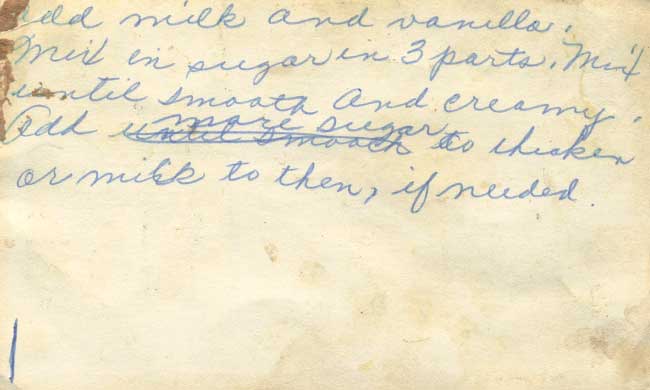 add milk and vanilla.
Mix in sugar in 3 parts. Mix
until smooth and creamy.
more sugar
Add until smooth to thicken
or milk to then, if needed.